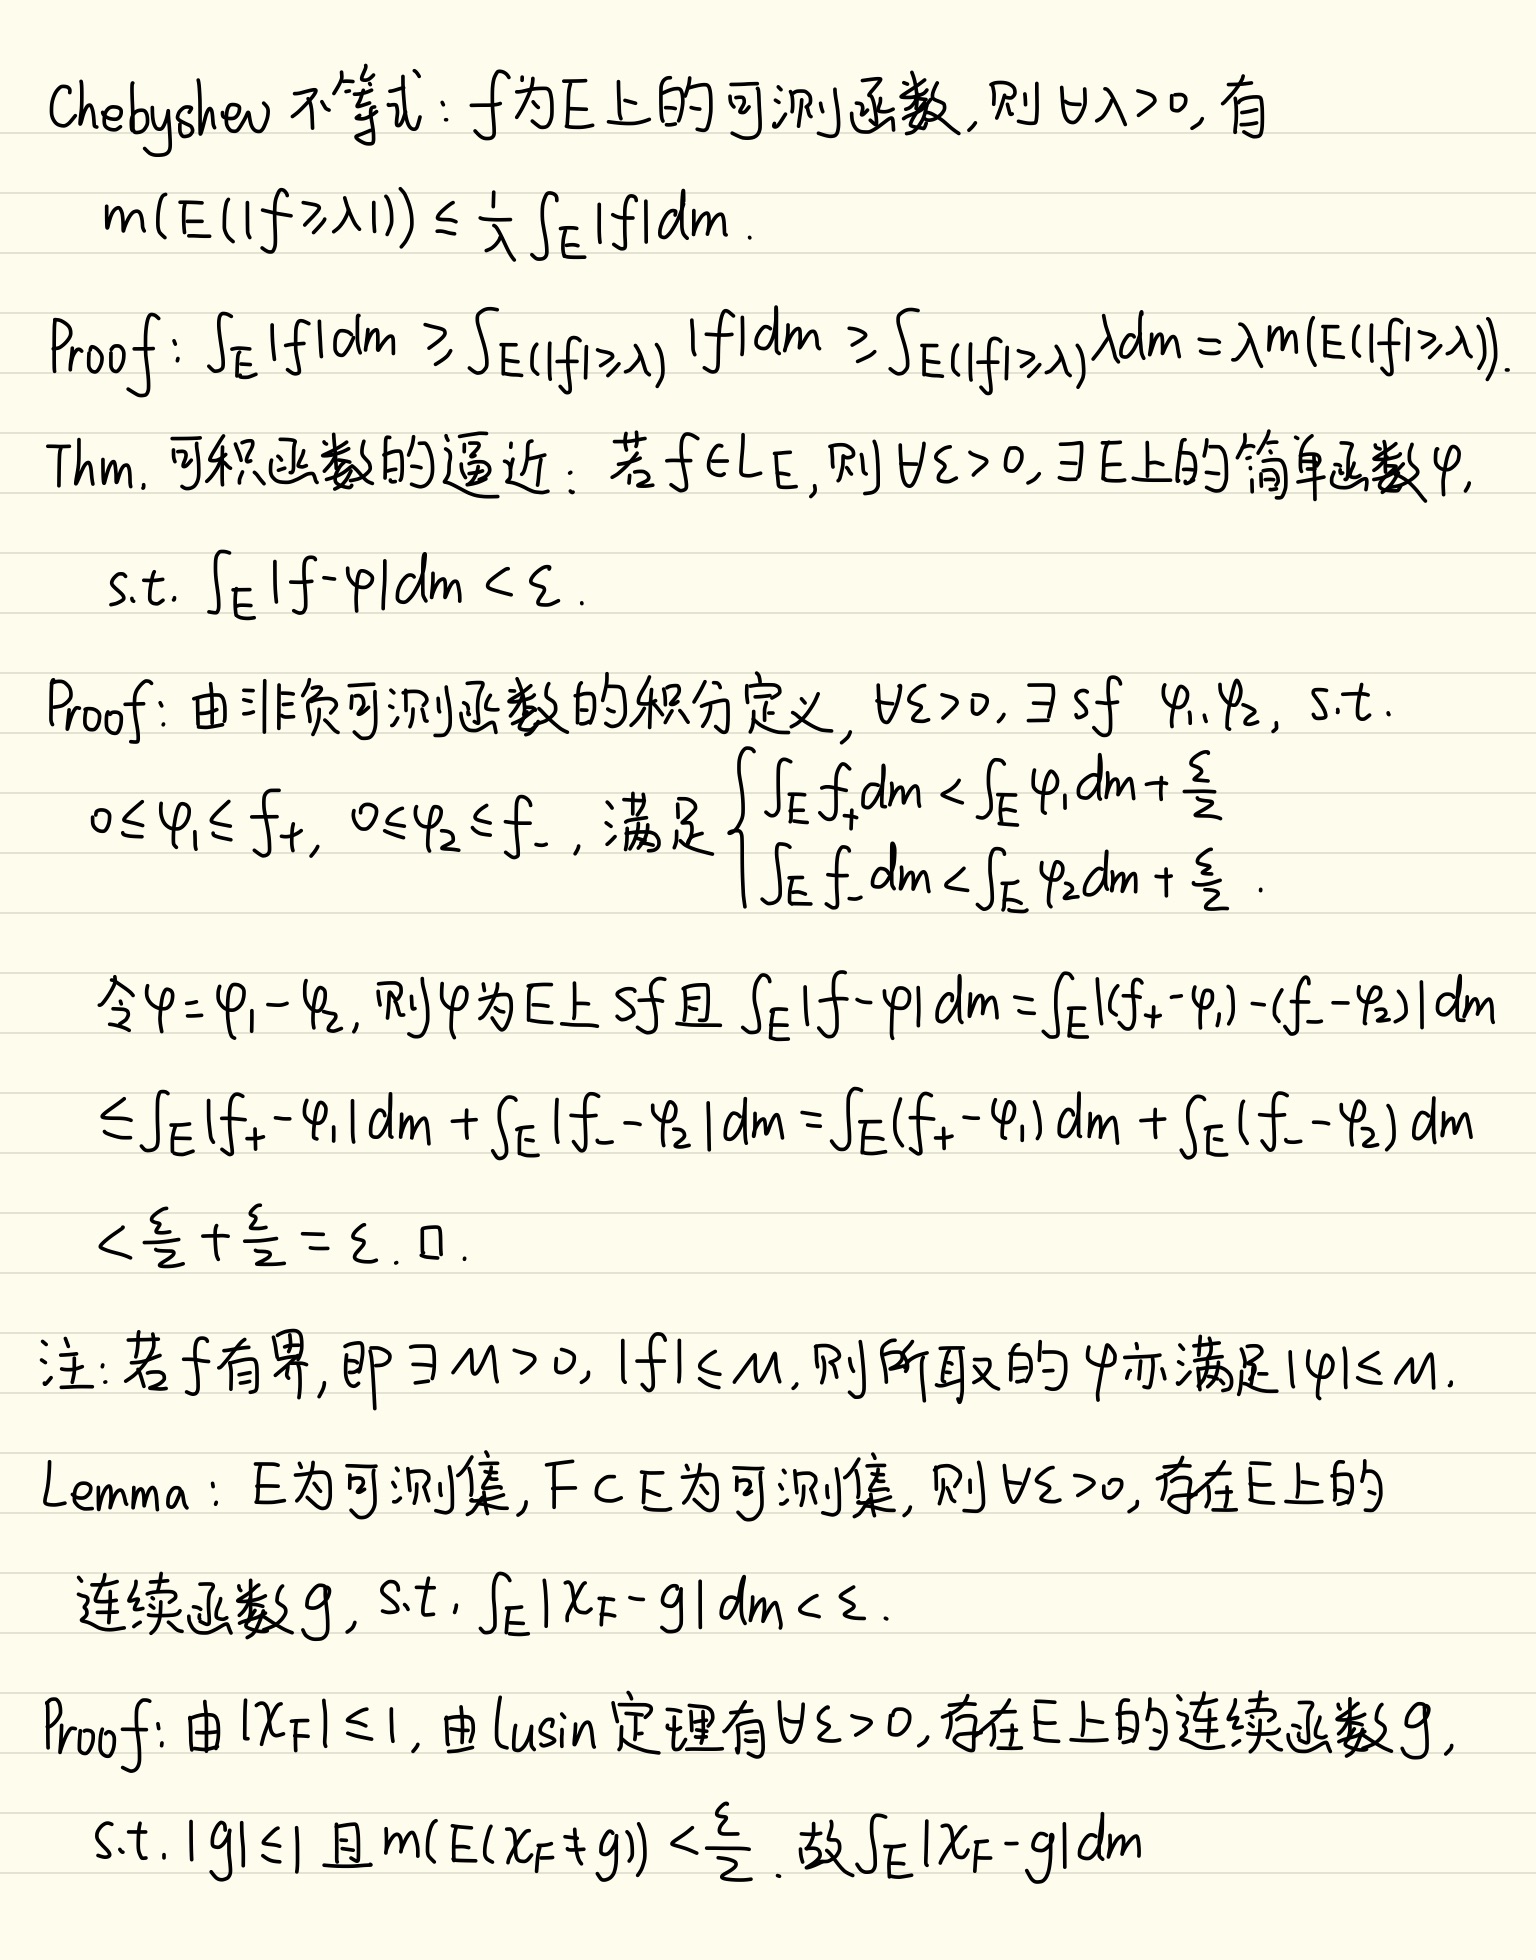 Chebyshev 不等式: f为E上的可测函数,则∀λ>0,有
m(E(|f≥λ|)) ≤ 1/λ ∫_E |f|dm.
Proof: ∫_E |f|dm ≥ ∫_{E(|f|≥λ)} |f|dm ≥ ∫_{E(|f|≥λ)} λdm = λm(E(|f|≥λ)).
Thm. 可积函数的逼近: 若f∈L_E,则∀ε>0,∃E上的简单函数φ,
s.t. ∫_E |f-φ|dm < ε.
Proof: 由非负可测函数的积分定义, ∀ε>0, ∃ sf φ₁、φ₂, s.t.
0≤φ₁≤f₊, 0≤φ₂≤f₋, 满足 { ∫_E f₊dm < ∫_E φ₁dm + ε/2
∫_E f₋dm < ∫_E φ₂dm + ε/2 .
令φ=φ₁-φ₂, 则φ为E上sf且 ∫_E |f-φ|dm = ∫_E |(f₊-φ₁)-(f₋-φ₂)|dm
≤ ∫_E |f₊-φ₁|dm + ∫_E |f₋-φ₂|dm = ∫_E (f₊-φ₁)dm + ∫_E (f₋-φ₂)dm
< ε/2 + ε/2 = ε. □.
注: 若f有界,即∃M>0, |f|≤M,则所取的φ亦满足|φ|≤M.
Lemma: E为可测集, F⊂E为可测集, 则∀ε>0,存在E上的
连续函数g, s.t. ∫_E |χ_F-g|dm < ε.
Proof: 由|χ_F|≤1, 由Lusin定理有∀ε>0,存在E上的连续函数g,
s.t. |g|≤1 且 m(E(χ_F≠g)) < ε/2 . 故∫_E |χ_F-g|dm